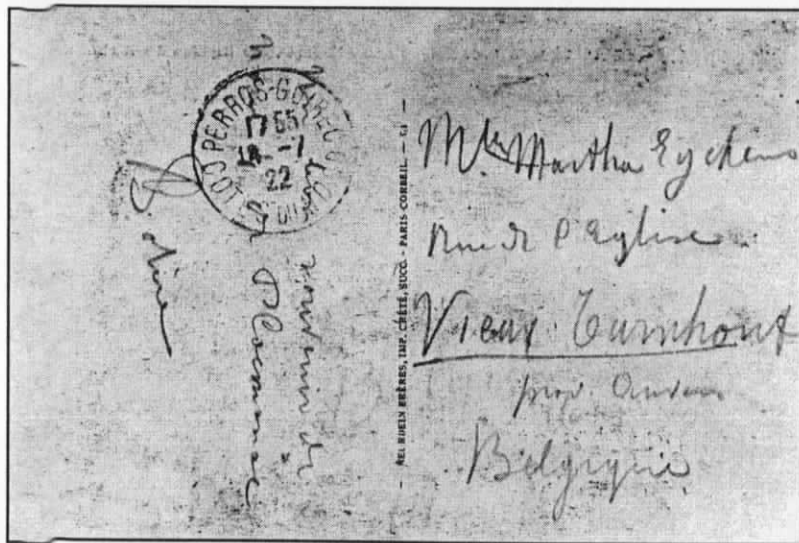 PERROS-GUIREC
17 55
18 -7
22
CÔTES DU N
souvenir de
Ploumanac
NEURDEIN FRÈRES, IMP. CRÉTÉ, SUCC. - PARIS CORBEIL. -
Mlle Martha Eyckens
Rue de l'Eglise
Vieux Turnhout
prov. Anvers
Belgique